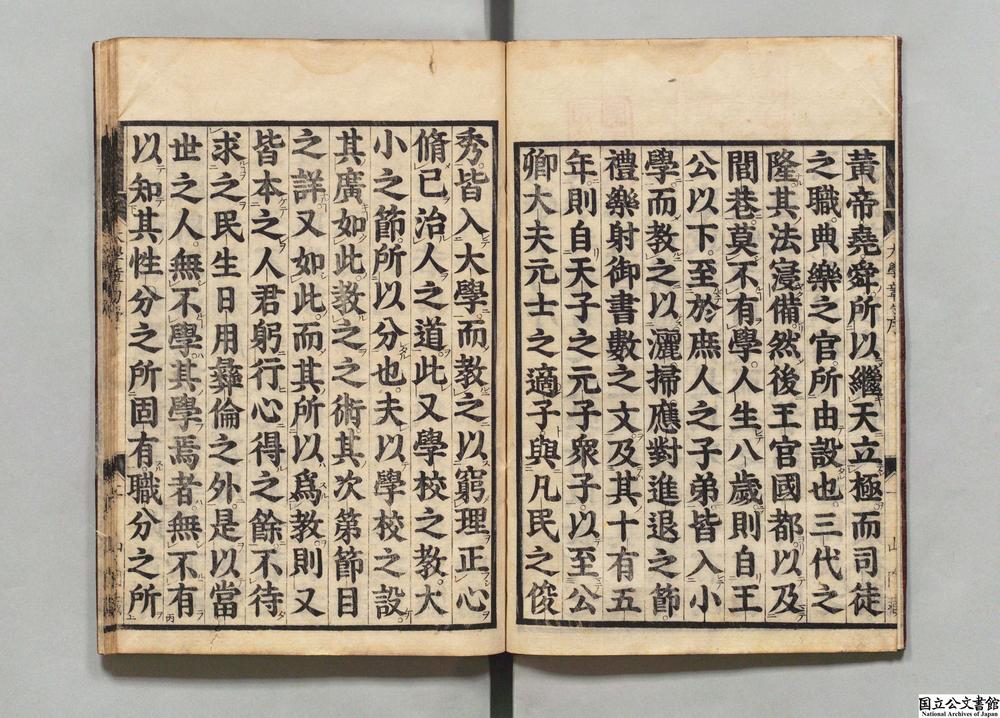 黃帝堯舜所以繼天立極而司徒
之職典樂之官所由設也三代之
隆其法寖備然後王宮國都以及
閭巷莫不有學人生八歲則自王
公以下至於庶人之子弟皆入小
學而教之以灑掃應對進退之節
禮樂射御書數之文及其十有五
年則自天子之元子眾子以至公
卿大夫元士之適子與凡民之俊
秀皆入大學而教之以窮理正心
脩己治人之道此又學校之教大
小之節所以分也夫以學校之設
其廣如此教之之術其次第節目
之詳又如此而其所以爲教則又
皆本之人君躬行心得之餘不待
求之民生日用彝倫之外是以當
世之人無不學其學焉者無不有
以知其性分之所固有職分之所
国立公文書館
National Archives of Japan